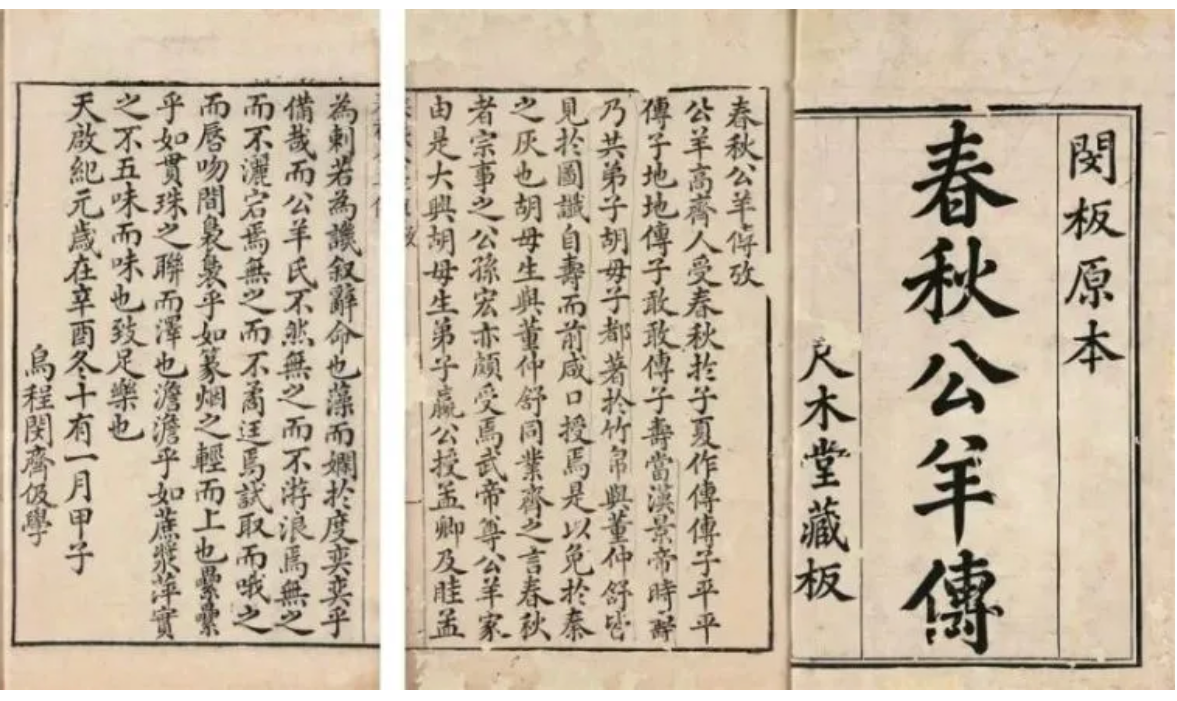 閔板原本
春秋公羊傳
尺木堂藏板
春秋公羊傳攷
公羊高齊人受春秋於子夏作傳傳子平平
傳子地地傳子敢敢傳子壽當漢景帝時壽
乃共弟子胡毋子都著於竹帛與董仲舒皆
見於圖讖自壽而前咸口授焉是以免於秦
之灰也胡毋生與董仲舒同業齊之言春秋
者宗事之公孫宏亦頗受焉武帝尊公羊家
由是大興胡母生弟子嬴公授孟卿及眭孟
為刺若為譏叙辭命也藻而斕於度奕奕乎
備哉而公羊氏不然無之而不游浪焉無之
而不灑宕焉無之而不矞迋焉試取而哦之
而唇吻間裊裊乎如篆烟之輕而上也纍纍
乎如貫珠之聯而澤也澹澹乎如蔗漿萍實
之不五味而味也致足樂也
天啟紀元歲在辛酉冬十有一月甲子
烏程閔齊伋學